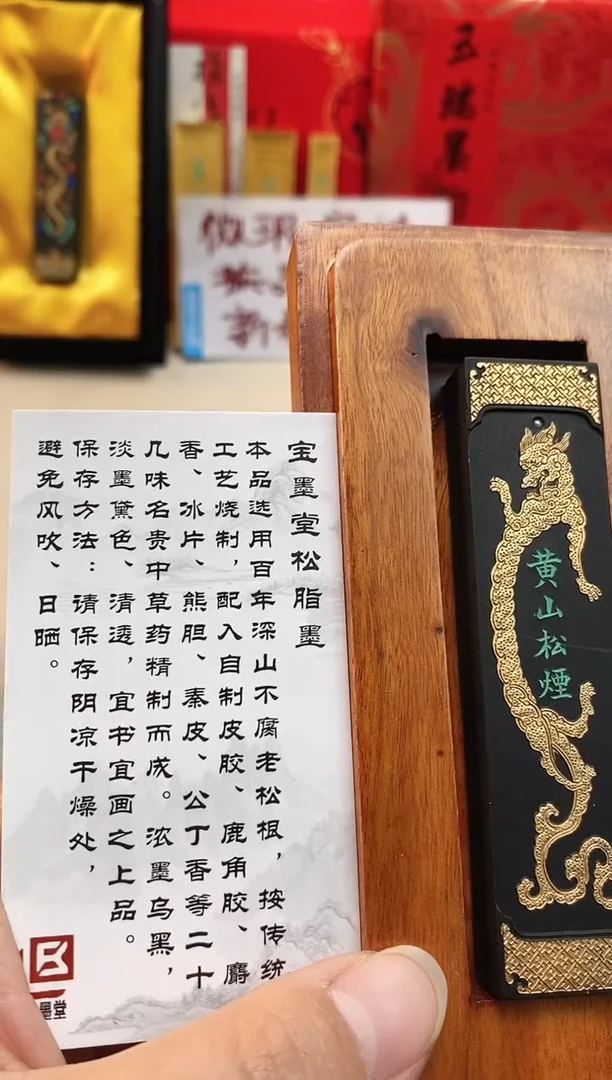 宝墨堂松脂墨
本品选用百年深山不腐老松根，按传统
工艺烧制，配入自制皮胶、鹿角胶、麝
香、冰片、熊胆、秦皮、公丁香等二十
几味名贵中草药精制而成。浓墨乌黑，
淡墨黛色、清透，宜书宜画之上品。
保存方法：请保存阴凉干燥处，
避免风吹、日晒。
墨堂
黄山松煙